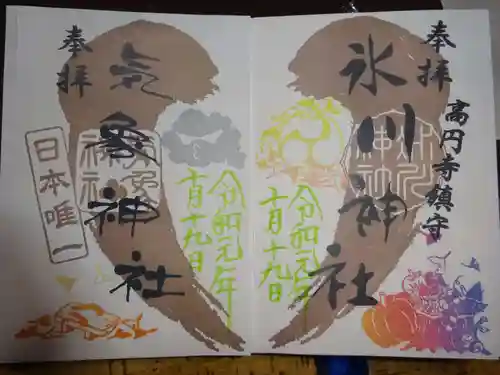 奉拝
氷川神社
高円寺鎮守
令和元年
十月十九日
奉拝
気象神社
日本唯一
令和元年
十月十九日